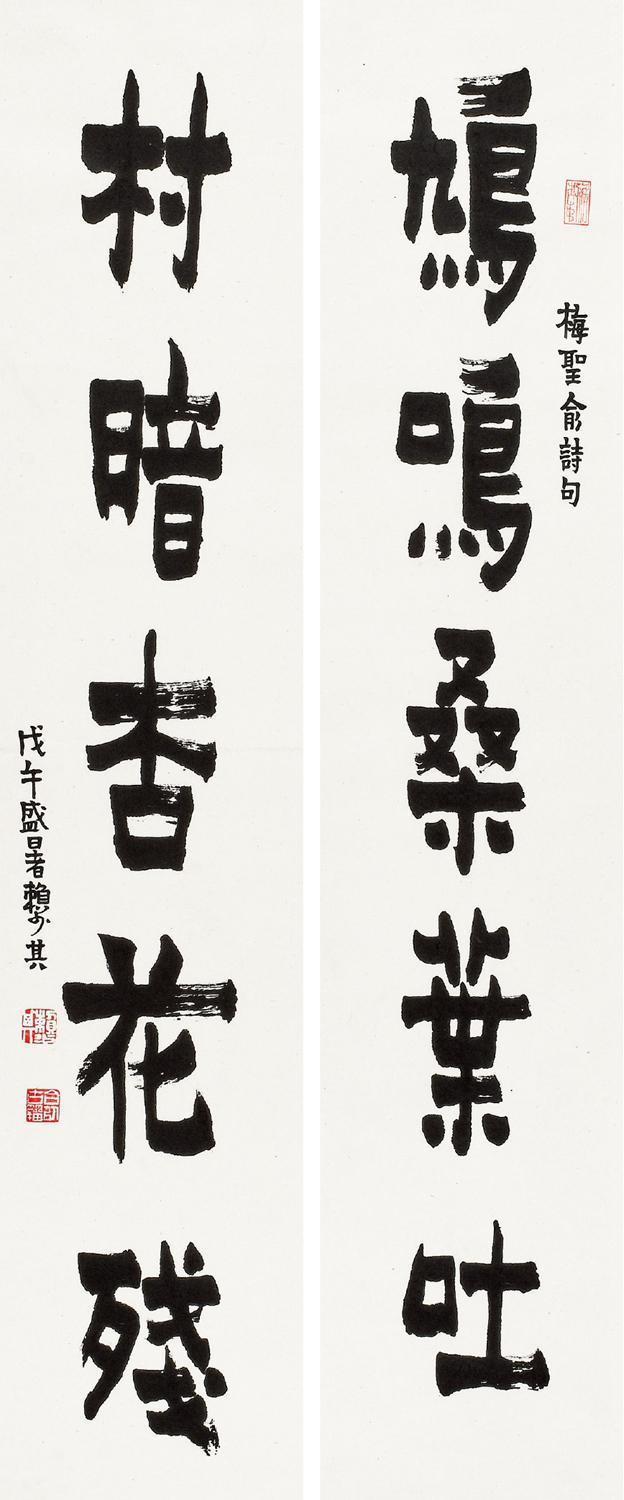 梅聖俞詩句
鳩鳴桑葉吐
村暗杏花殘
戊午盛暑賴少其